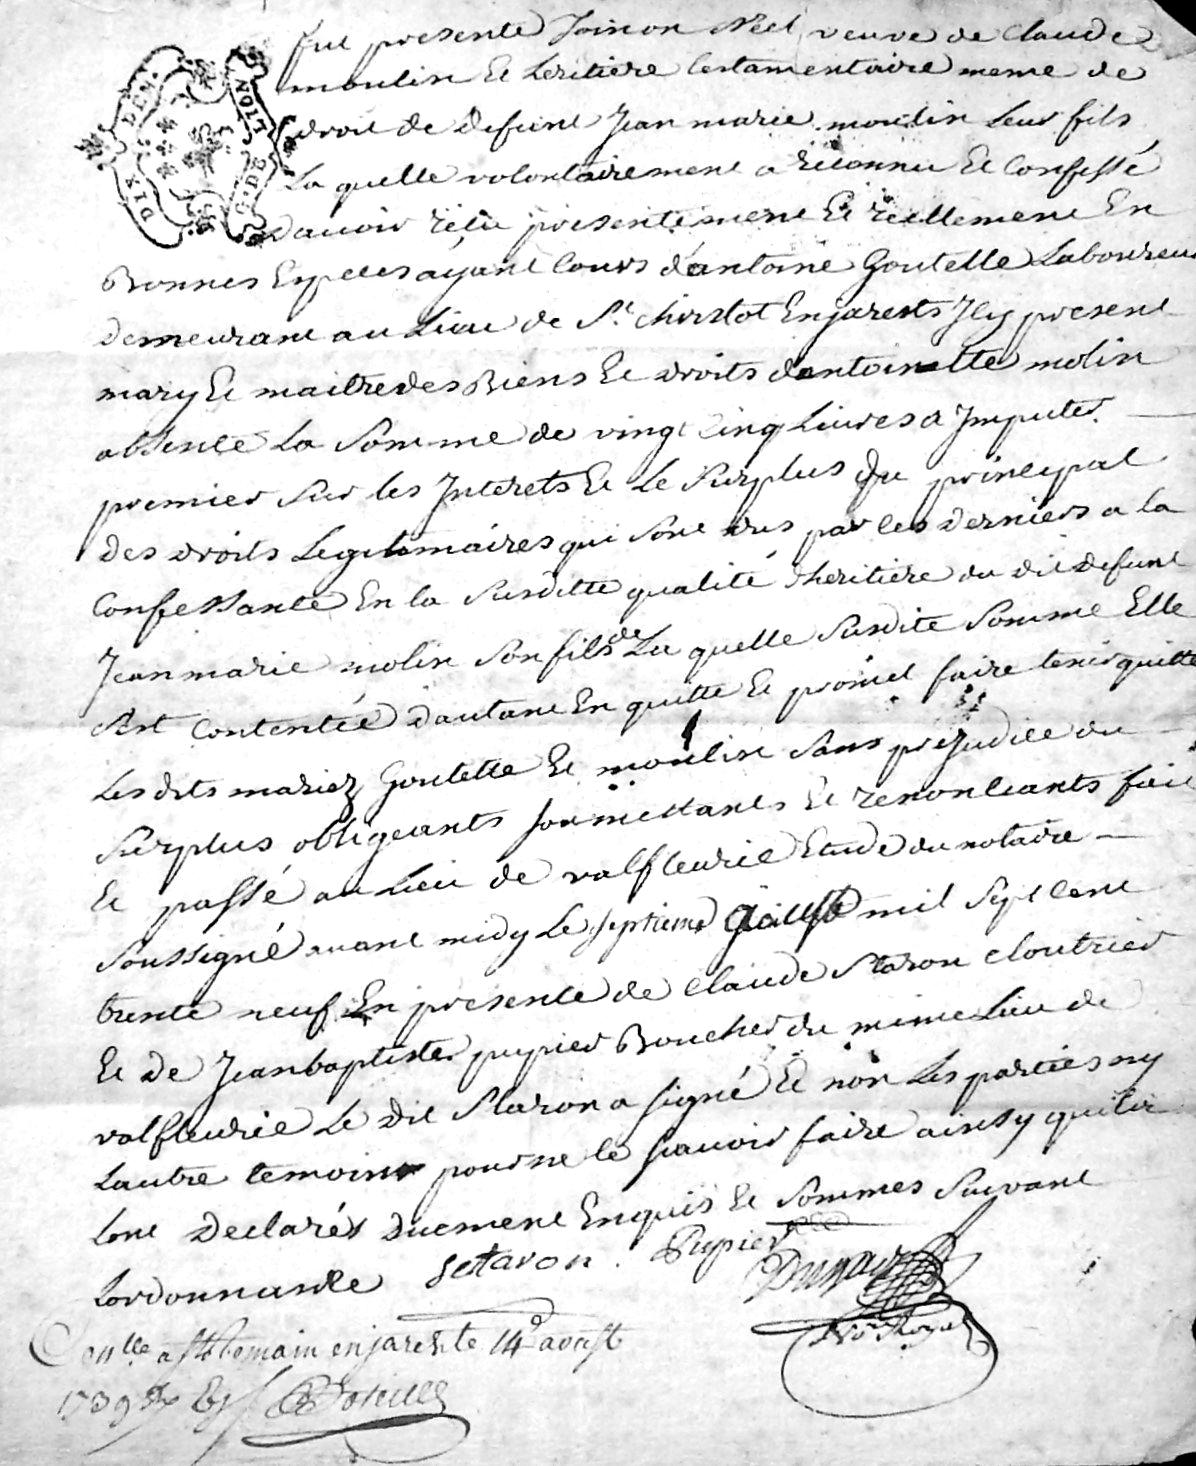 fut presente Toinon Néel veuve de Claude
moulin Et heritiere testamentaire meme de
droit de defunt Jean marie moulin Leur fils
La quelle volontairement a reconnu Et Confessé
Davoir reçu presentement Et reellement En
Bonnes Especes ayant Cours d'antoine Goutelle Laboureur
demeurant au Lieu de St. Christot Enjarests Jly present
mary Et maitre des Biens Et droits dantoinette molin
absente La Somme de vingt Cinq Livres a Imputer
premier Sur les Interets Et Le Surplus Du principal
des droits Legitimaires qui Sont dus par les derniers a la
Confessante En la Susditte qualité dheritiere du dit defunt
Jean marie molin Son fils de La quelle Susdite Somme Elle
Sest Contentée Dautant En quitte Et promet faire tenir quitte
Les dits mariez Goutelle Et moulin Sans prejudice du
Surplus obligeants soumettants Et renonceants fait
Et passé au Lieu de valfleurie Etude du notaire
Soussigné avant midy Le septieme aoust mil Sept Cent
trente neuf En presence de Claude Staron Cloutrier
Et de Jean baptiste pupier Boucher du mime Lieu de
valfleurie Le dit Staron a signé Et non Les parties ny
Lautre temoin pour ne le scavoir faire ainsy quils
Lont Declarés Duement Enquis Et Sommes Suivant
Lordonnance Setaron. Pupier
No.re Royal
Conlle a St Romain enjareste 14e aoust
1739